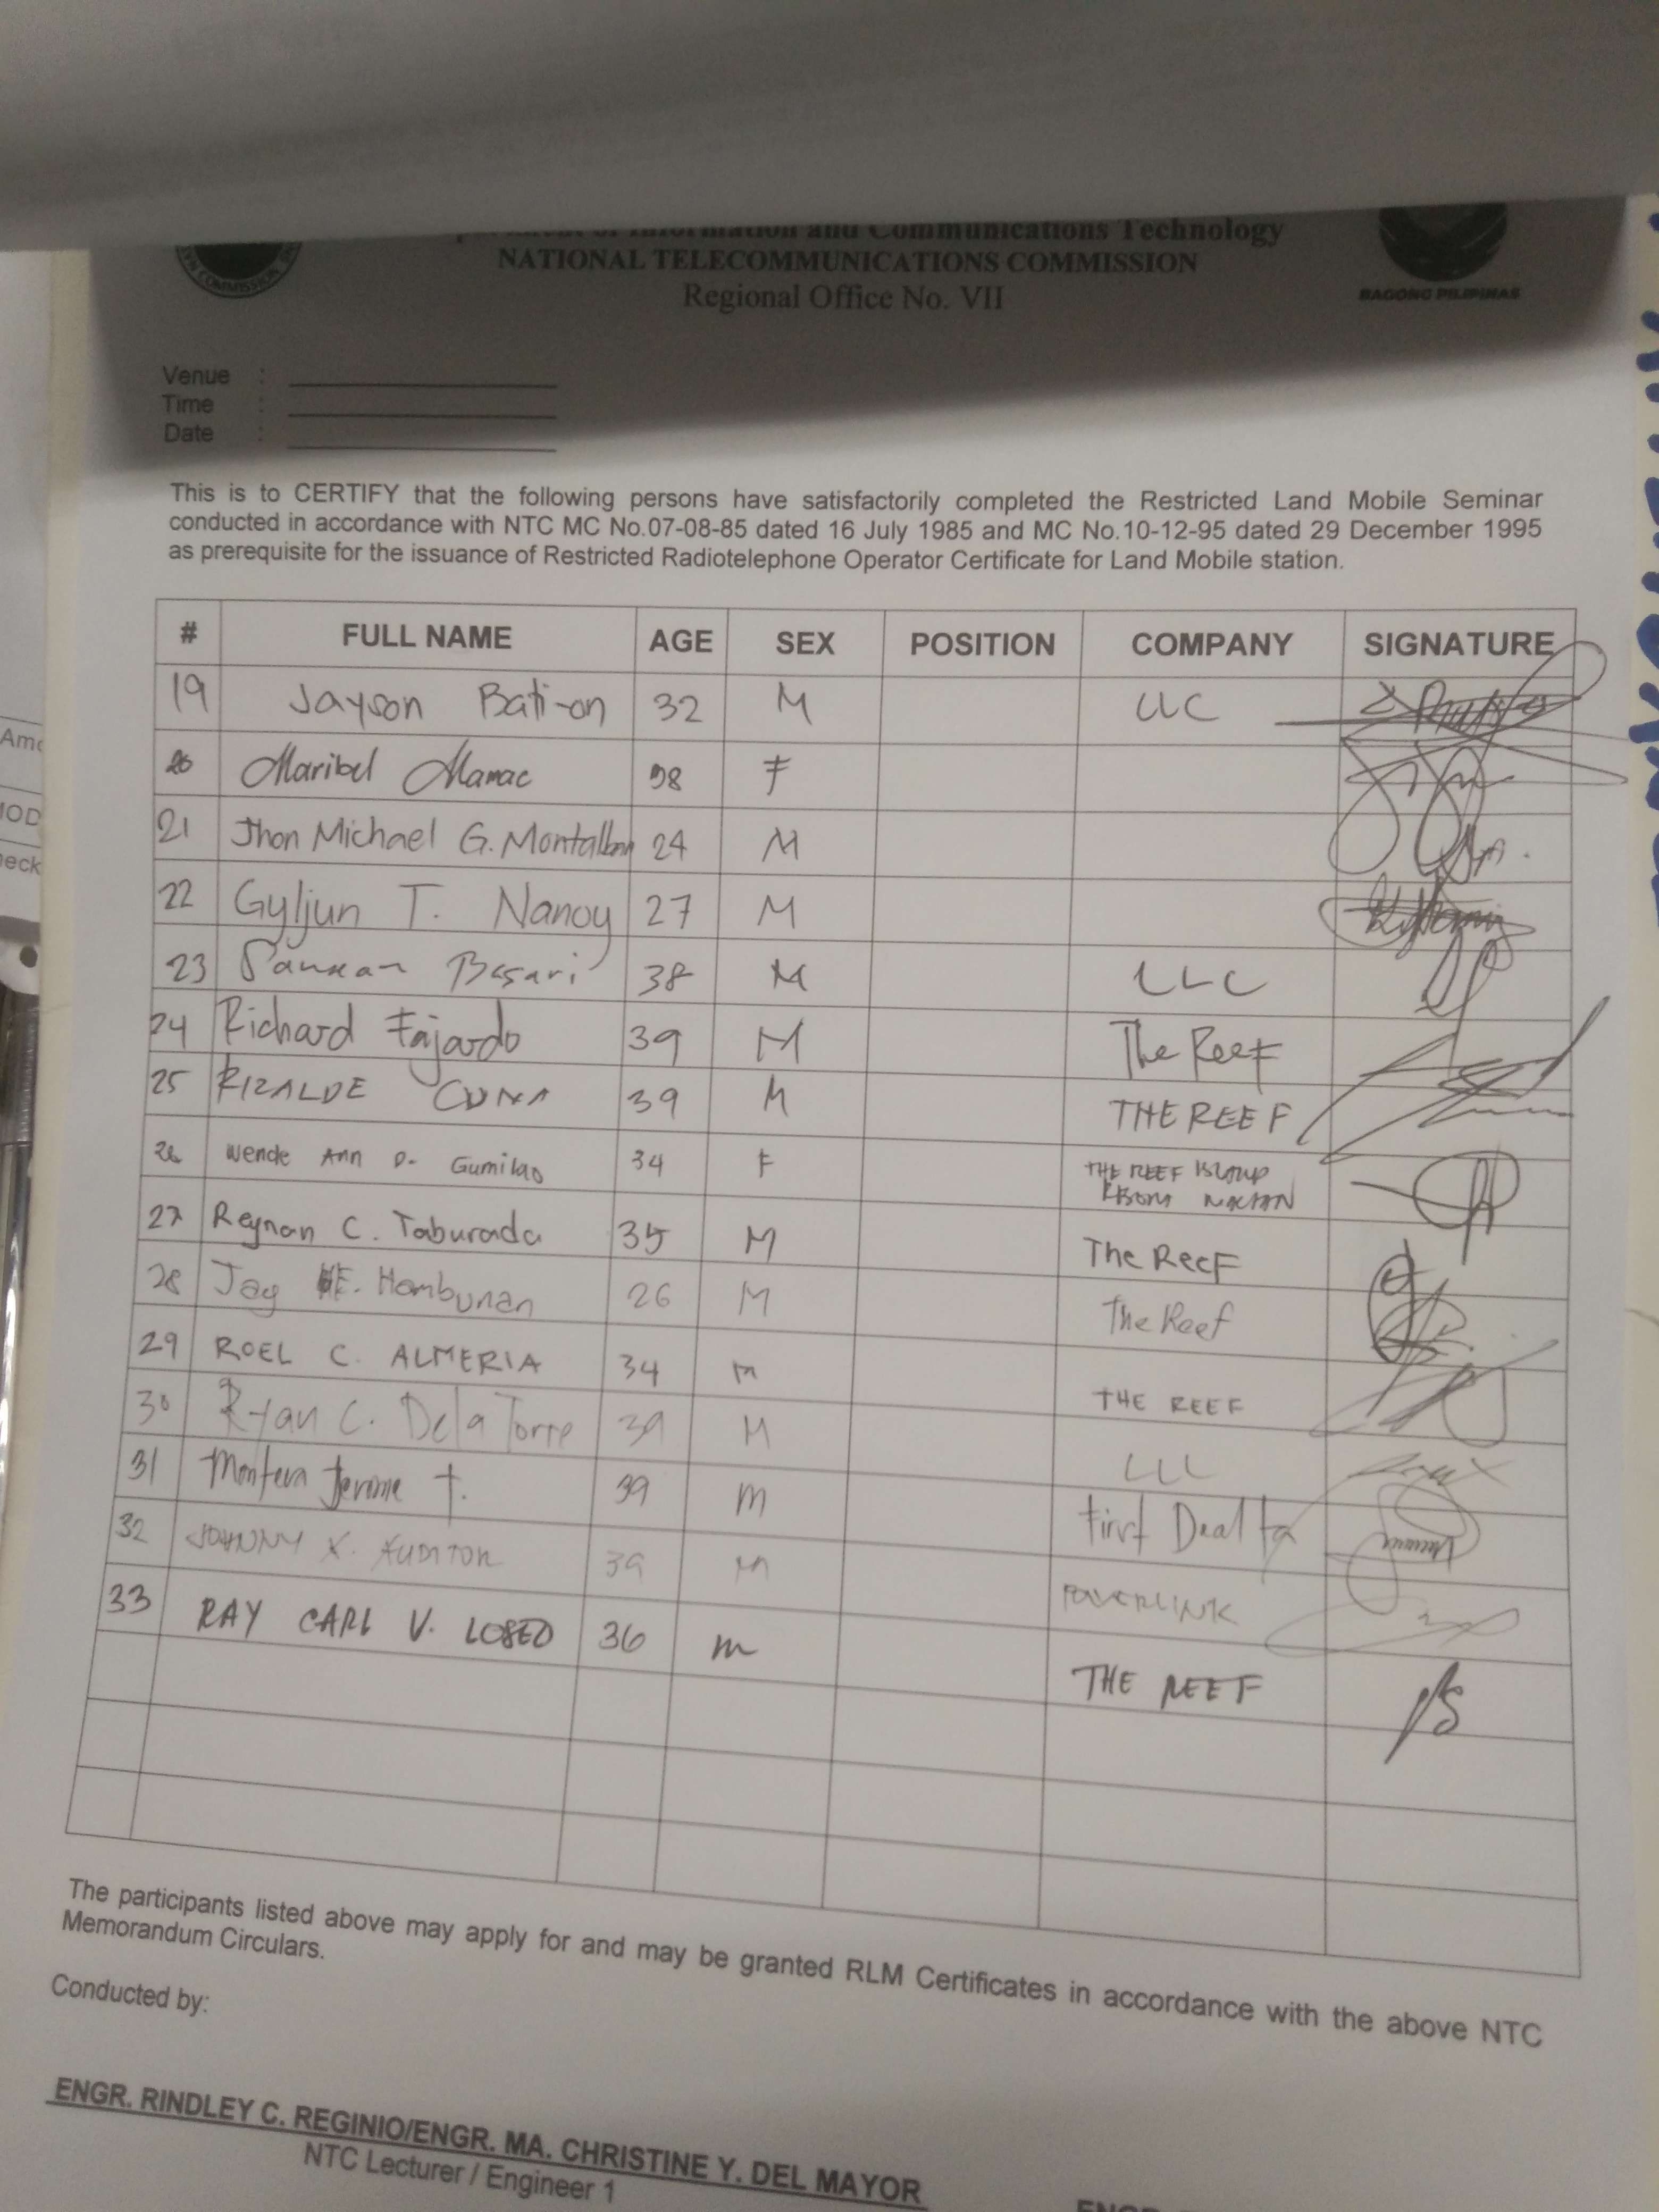 Information and Communications Technology
NATIONAL TELECOMMUNICATIONS COMMISSION
Regional Office No. VII
COMMISSION
BAGONG PILIPINAS
Venue :
Time :
Date :
This is to CERTIFY that the following persons have satisfactorily completed the Restricted Land Mobile Seminar
conducted in accordance with NTC MC No.07-08-85 dated 16 July 1985 and MC No.10-12-95 dated 29 December 1995
as prerequisite for the issuance of Restricted Radiotelephone Operator Certificate for Land Mobile station.
# FULL NAME AGE SEX POSITION COMPANY SIGNATURE
19 Jayson Bati-on 32 M LLC
20 Maribel Mamac 38 F
21 Jhon Michael G. Montalban 24 M
22 Gyljun T. Nanoy 27 M
23 Basari 38 M LLC
24 Richard Fajardo 39 M The Reef
25 RIZALDE CUNA 39 M THE REEF
26 Wende Ann D. Gumilao 34 F THE REEF ISLAND
27 Reynan C. Taburada 35 M The Reef
28 Jay E. Hambunan 26 M The Reef
29 ROEL C. ALMERIA 34 M THE REEF
30 Ryan C. Dela Torre 39 M LLC
31 Jerome T. 39 m First Dealta
32 JOHNNY X. AUDITOR 39 M POWERLINK
33 RAY CARL V. LOBED 36 m THE REEF
The participants listed above may apply for and may be granted RLM Certificates in accordance with the above NTC
Memorandum Circulars.
Conducted by:
ENGR. RINDLEY C. REGINIO/ENGR. MA. CHRISTINE Y. DEL MAYOR
NTC Lecturer / Engineer 1